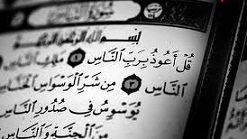 سُورَةُ النَّاسِ
بِسْمِ اللَّهِ الرَّحْمَٰنِ الرَّحِيمِ
قُلْ أَعُوذُ بِرَبِّ النَّاسِ ١
النَّاسِ ٣ مِن شَرِّ الْوَسْوَاسِ
يُوَسْوِسُ فِي صُدُورِ النَّاسِ
مِنَ الْجِنَّةِ وَالنَّاسِ